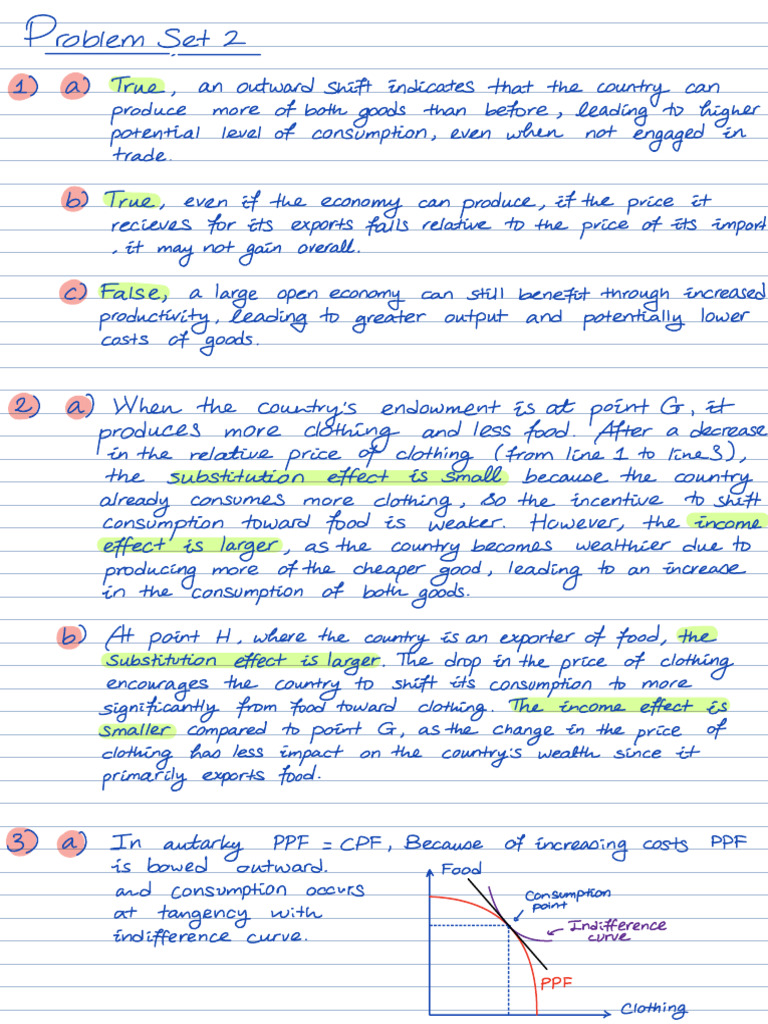 Problem Set 2
1) a) True, an outward shift indicates that the country can
produce more of both goods than before, leading to higher
potential level of consumption, even when not engaged in
trade.
b) True, even if the economy can produce, if the price it
recieves for its exports falls relative to the price of its import
, it may not gain overall.
c) False, a large open economy can still benefit through increased
productivity, leading to greater output and potentially lower
costs of goods.
2) a) When the country's endowment is at point G, it
produces more clothing and less food. After a decrease
in the relative price of clothing (from line 1 to line 3),
the substitution effect is small because the country
already consumes more clothing, so the incentive to shift
consumption toward food is weaker. However, the income
effect is larger, as the country becomes wealthier due to
producing more of the cheaper good, leading to an increase
in the consumption of both goods.
b) At point H, where the country is an exporter of food, the
substitution effect is larger. The drop in the price of clothing
encourages the country to shift its consumption to more
significantly from food toward clothing. The income effect is
smaller compared to point G, as the change in the price of
clothing has less impact on the country's wealth since it
primarily exports food.
3) a) In autarky PPF = CPF, Because of increasing costs PPF
is bowed outward.
and consumption occurs
at tangency with
indifference curve.
Food
Consumption
point
Indifference
curve
PPF
Clothing